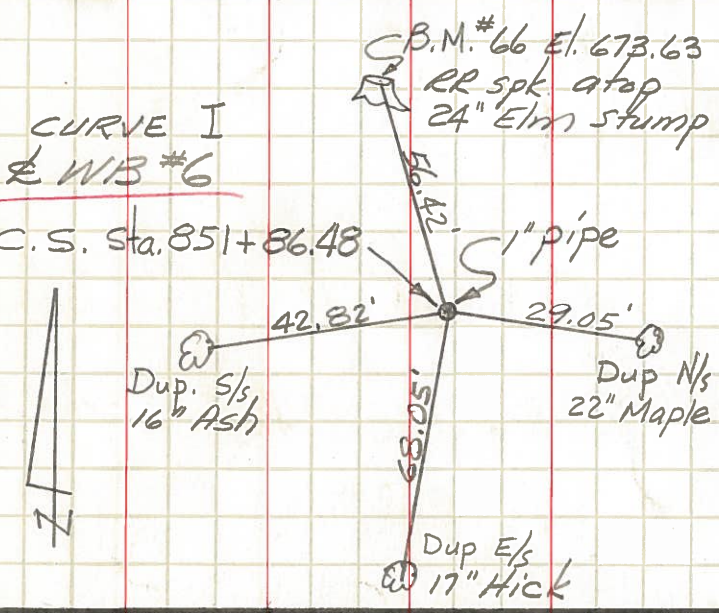 B.M. #66 El. 673.63
RR spk. atop
24" Elm stump
CURVE I
℄ WB #6
56.42'
C.S. Sta. 851+86.48
1" pipe
42.82'
29.05'
Dup. S/s
16" Ash
Dup N/s
22" Maple
68.05'
N
Dup E/s
17" Hick